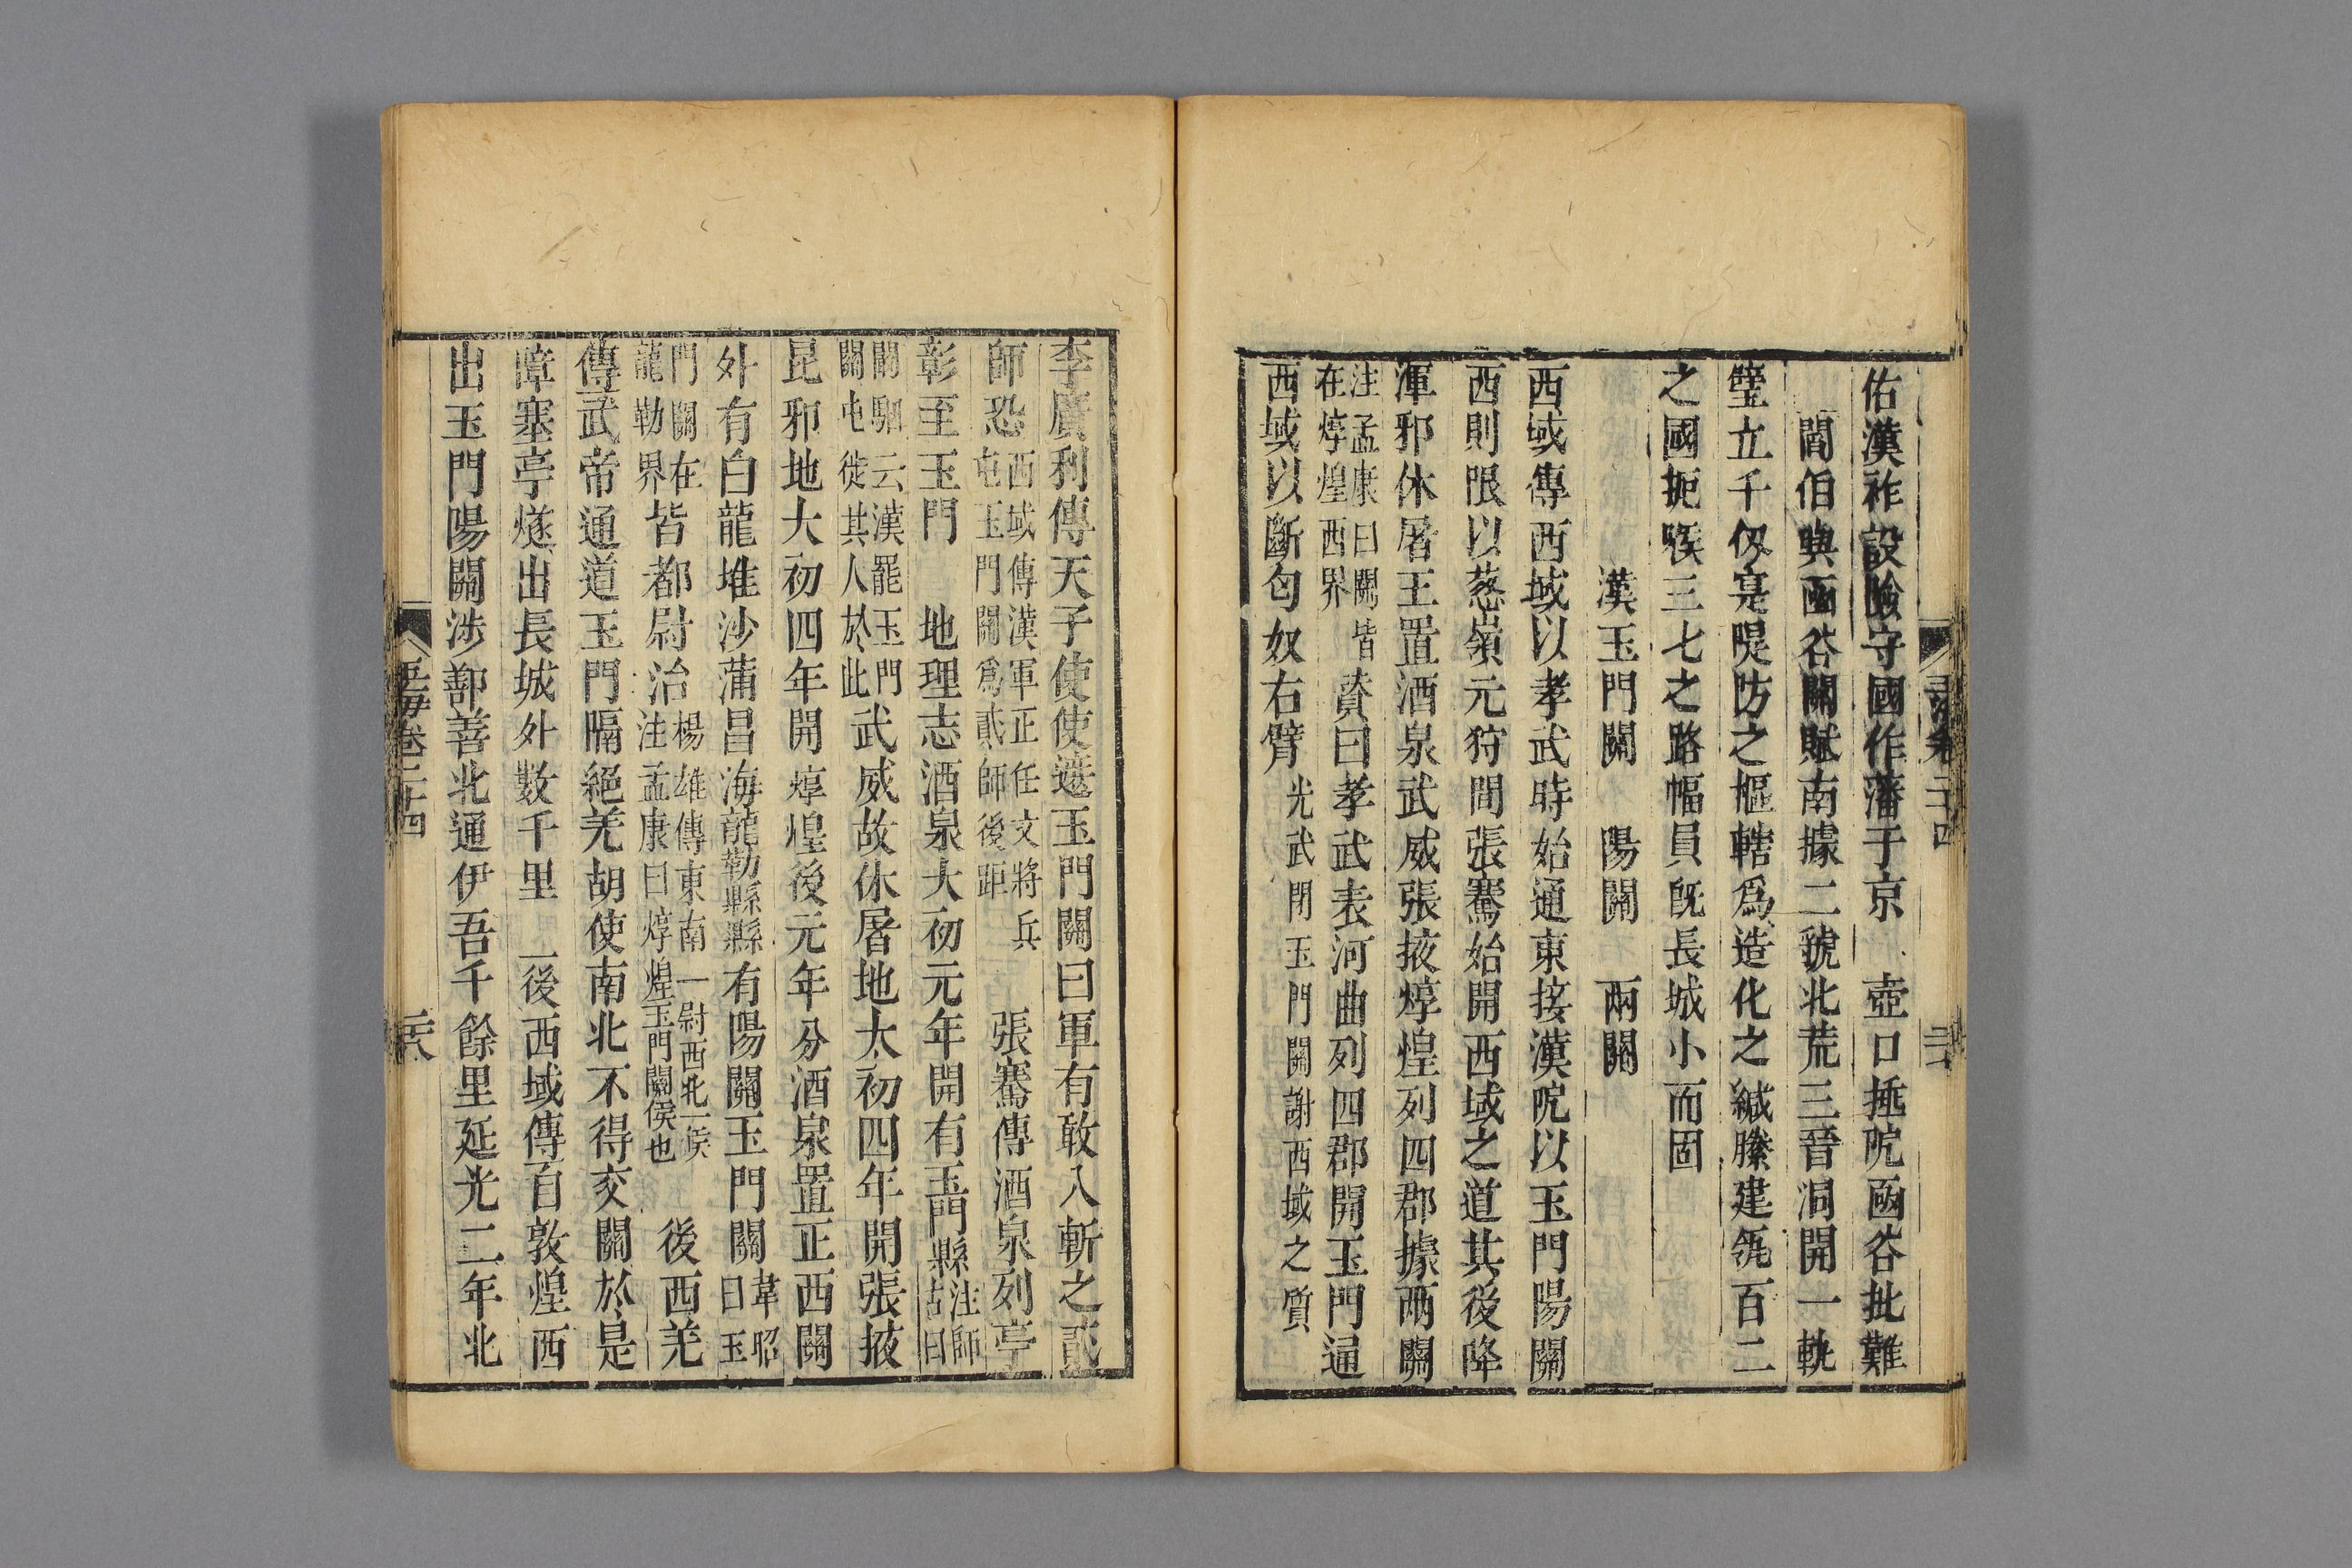 佑漢祚設險守國作藩于京 壺口捶阸函谷批難
閻伯璵函谷關賦南據二虢北荒三晉洞開一軌
壁立千仭寔隄防之樞轄爲造化之緘縢建瓴百二
之國扼喉三七之路幅員旣長城小而固
漢玉門關 陽關 兩關
西域傳西域以孝武時始通東接漢阸以玉門陽關
西則限以葱嶺元狩間張騫始開西域之道其後降
渾邪休屠王置酒泉武威張掖焞煌列四郡據兩關
注孟康曰關皆
在焞煌西界
賛曰孝武表河曲列四郡開玉門通
西域以斷匈奴右臂光武閉玉門關謝西域之質
李廣利傳天子使使遮玉門關曰軍有敢入斬之貳
師恐
西域傳漢軍正任文將兵
屯玉門關爲貳師後距
張騫傳酒泉列亭
彰至玉門 地理志酒泉大初元年開有玉門縣
注師
古曰
關駰云漢罷玉門
關屯徙其人於此
武威故休屠地太初四年開張掖
昆邪地大初四年開焞煌後元年分酒泉置正西關
外有白龍堆沙蒲昌海龍勒縣縣有陽關玉門關
韋昭
曰玉
門關在
龍勒界
皆都尉治
楊雄傳東南一尉西北一候
注孟康曰焞煌玉門關侯也
後西羌
傳武帝通道玉門隔絕羌胡使南北不得交關於是
障塞亭燧出長城外數千里 後西域傳百敦煌西
出玉門陽關涉鄯善北通伊吾千餘里延光二年北
玉海卷二十四
二六